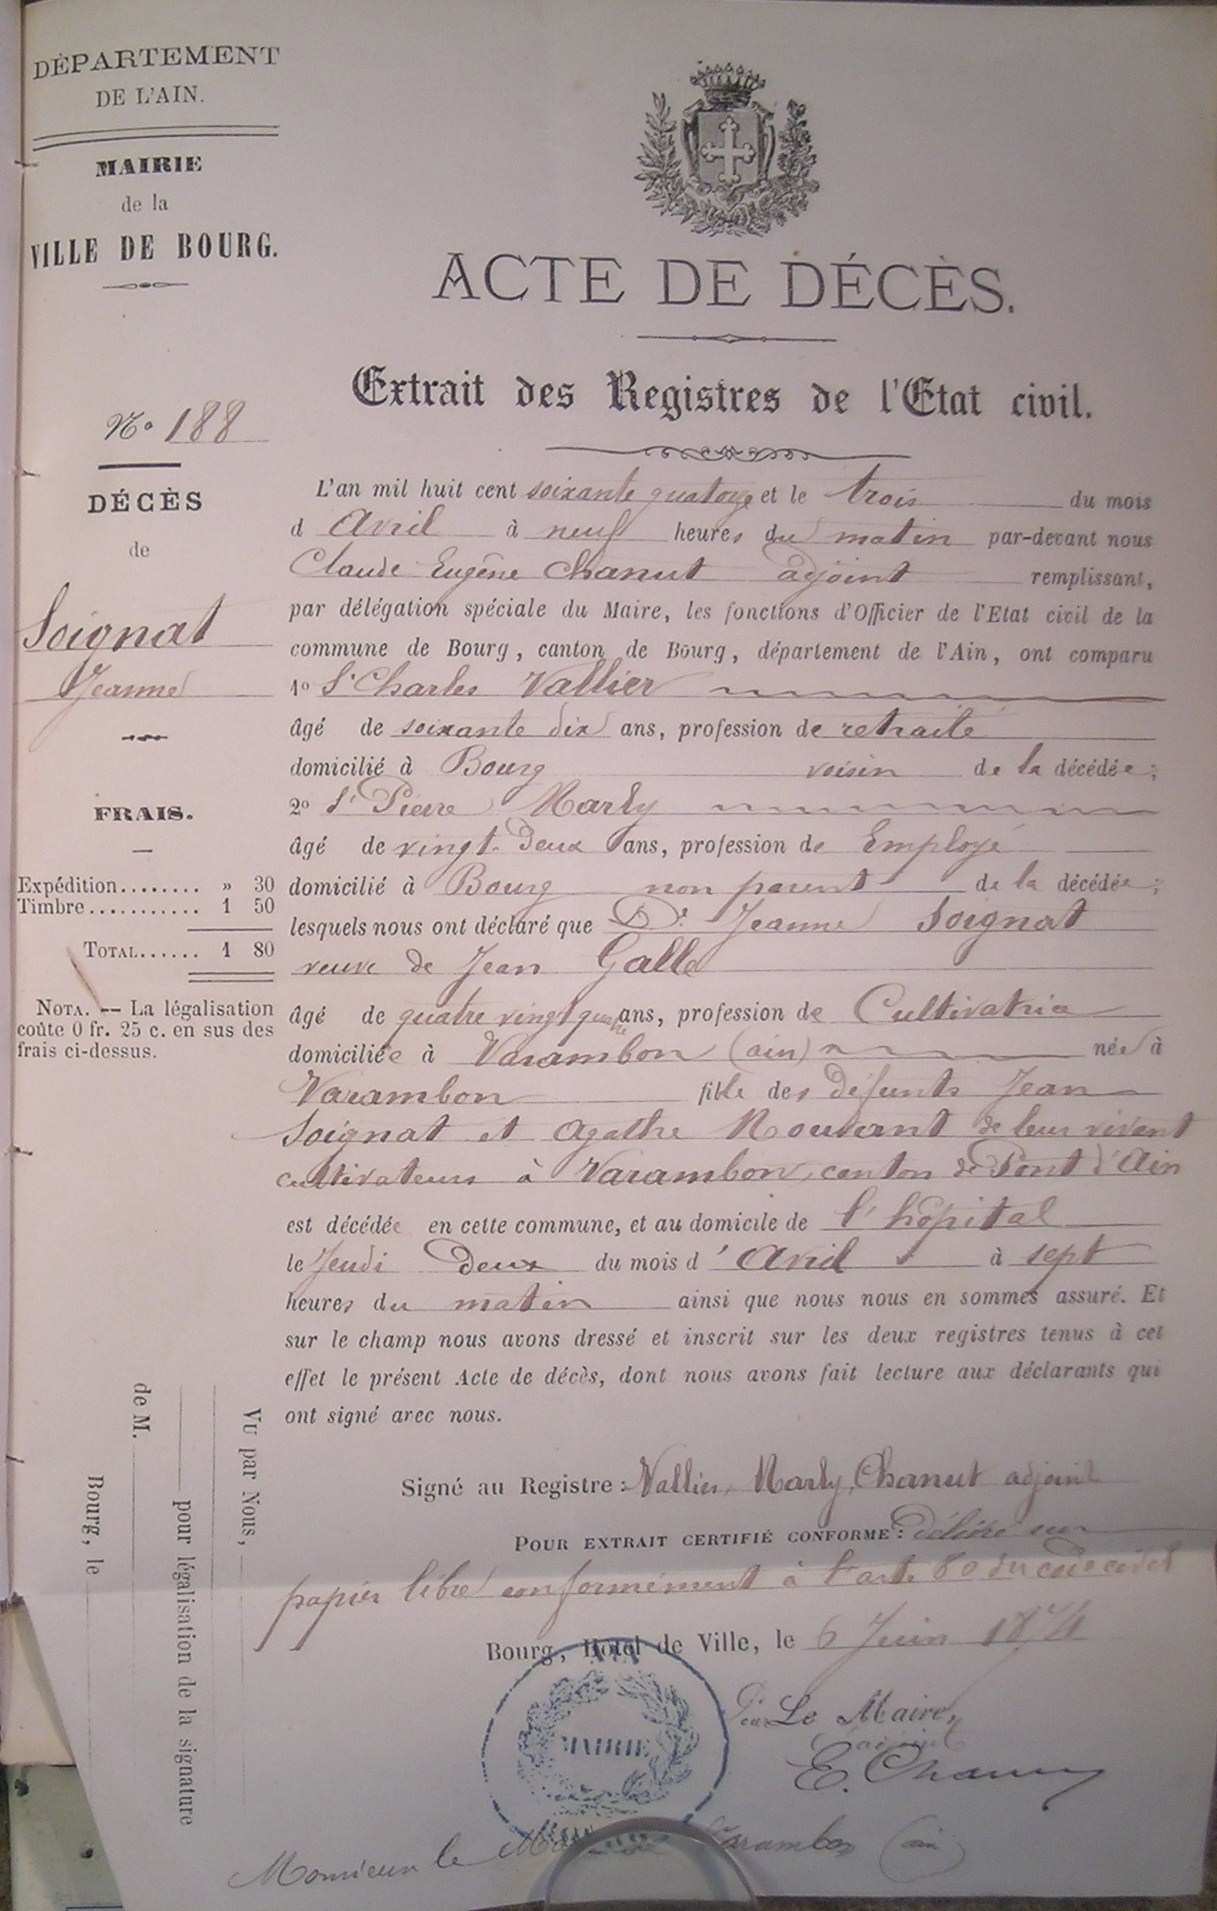 DÉPARTEMENT
DE L'AIN.
MAIRIE
de la
VILLE DE BOURG.
ACTE DE DÉCÈS.
Extrait des Registres de l'Etat civil.
No 188
DÉCÈS
de
Soignat
Jeanne
FRAIS.
Expédition........ » 30
Timbre........... 1 50
TOTAL...... 1 80
NOTA. — La légalisation
coûte 0 fr. 25 c. en sus des
frais ci-dessus.
L'an mil huit cent soixante quatorze et le trois du mois
d Avril à neuf heures du matin par-devant nous
Claude Eugène Chanut adjoint remplissant,
par délégation spéciale du Maire, les fonctions d'Officier de l'Etat civil de la
commune de Bourg, canton de Bourg, département de l'Ain, ont comparu
1o Sr Charles Vallier
âgé de soixante dix ans, profession de retraité
domicilié à Bourg voisin de la décédée;
2o Sr Pierre Marly
âgé de vingt-deux ans, profession de Employé
domicilié à Bourg non parent de la décédée;
lesquels nous ont déclaré que De Jeanne Soignat
veuve de Jean Galle
âgé de quatre vingt quatre ans, profession de Cultivatrice
domiciliée à Varambon (ain) née à
Varambon fille des défunts Jean
Soignat et Agathe Mouvant de leur vivant
cultivateurs à Varambon, canton de Pont d'Ain
est décédée en cette commune, et au domicile de l'hôpital
le Jeudi deux du mois d'Avril à sept
heures du matin ainsi que nous nous en sommes assuré. Et
sur le champ nous avons dressé et inscrit sur les deux registres tenus à cet
effet le présent Acte de décès, dont nous avons fait lecture aux déclarants qui
ont signé avec nous.
Signé au Registre : Vallier, Marly, Chanut adjoint
POUR EXTRAIT CERTIFIÉ CONFORME : délivré sur
papier libre conformément à l'art. 80 du code civil
Bourg, Hotel de Ville, le 6 Juin 1874
Pour Le Maire,
l'adjoint
E. Chanut
MAIRIE
Monsieur le Varambon (ain)
Vu par Nous,
pour légalisation de la signature
de M.
Bourg, le